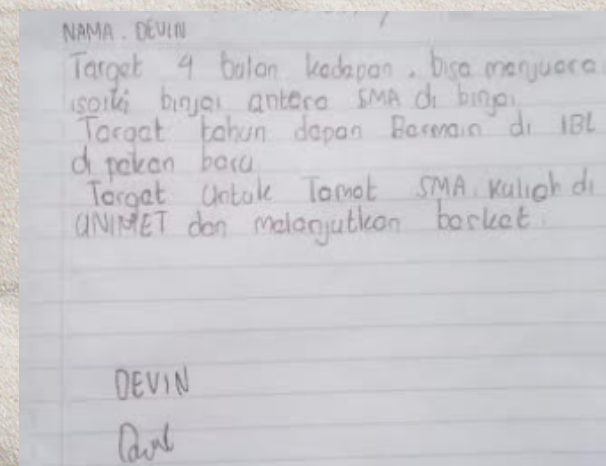 NAMA . DEVIN
Target 4 bulan kedepan . bisa menjuara
binjai antara SMA di binjai
Target tahun depan Bermain di IBL
di pekan baru
Target Untuk Tamat SMA. Kuliah di
UNIMET dan melanjutkan basket.
DEVIN